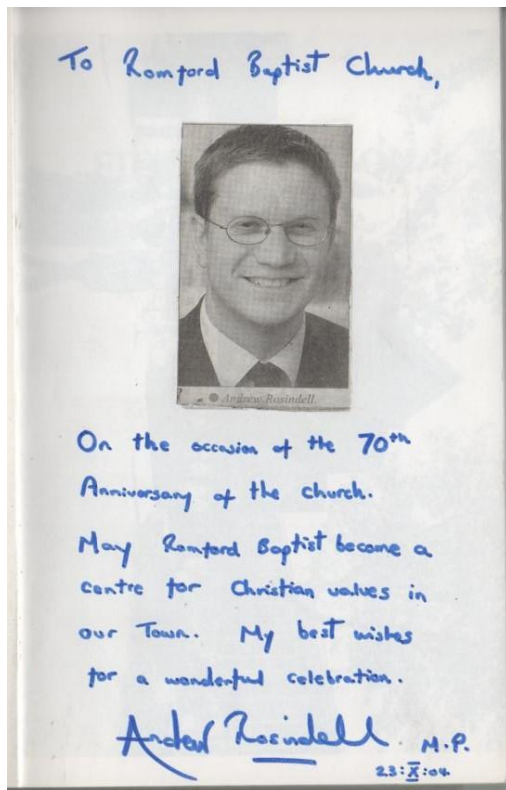 To Romford Baptist Church,
Andrew Rosindell.
On the occasion of the 70th
Anniversary of the church.
May Romford Baptist become a
centre for Christian values in
our Town. My best wishes
for a wonderful celebration.
Andrew Rosindell M.P.
23:X:04